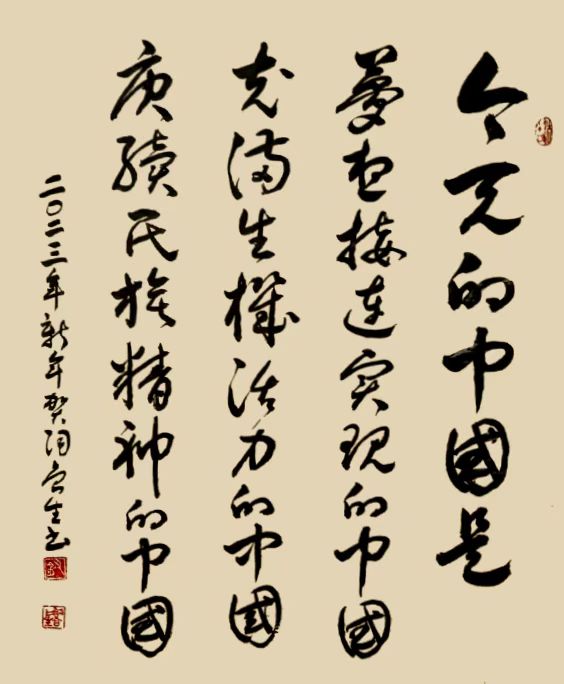 今天的中國是
夢想接連实現的中國
充滿生機活力的中國
賡續民族精神的中國
二〇二三年新年賀詞 生书